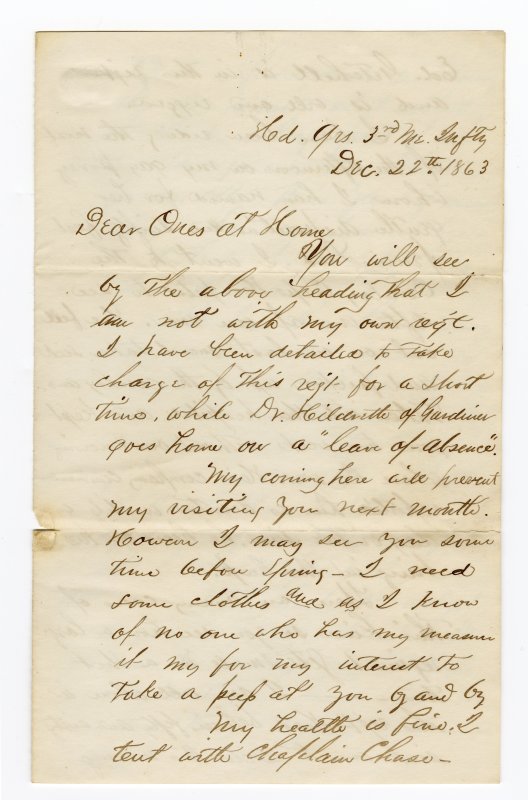 Hd. Qrs. 3rd Me. Infty
Dec. 22th 1863
Dear Ones at Home
You will see
by the above heading that I
am not with my own reg't.
I have been detailed to take
charge of this reg't for a short
time, while Dr. Hildreth of Gardiner
goes home on a "leave of absence".
My coming here will prevent
my visiting you next month.
However I may see you some
time before Spring - I need
some clothes and as I know
of no one who has my measure
it my for my interest to
take a peep at you by and by
My health is fine. I
tent with Chaplain Chase -